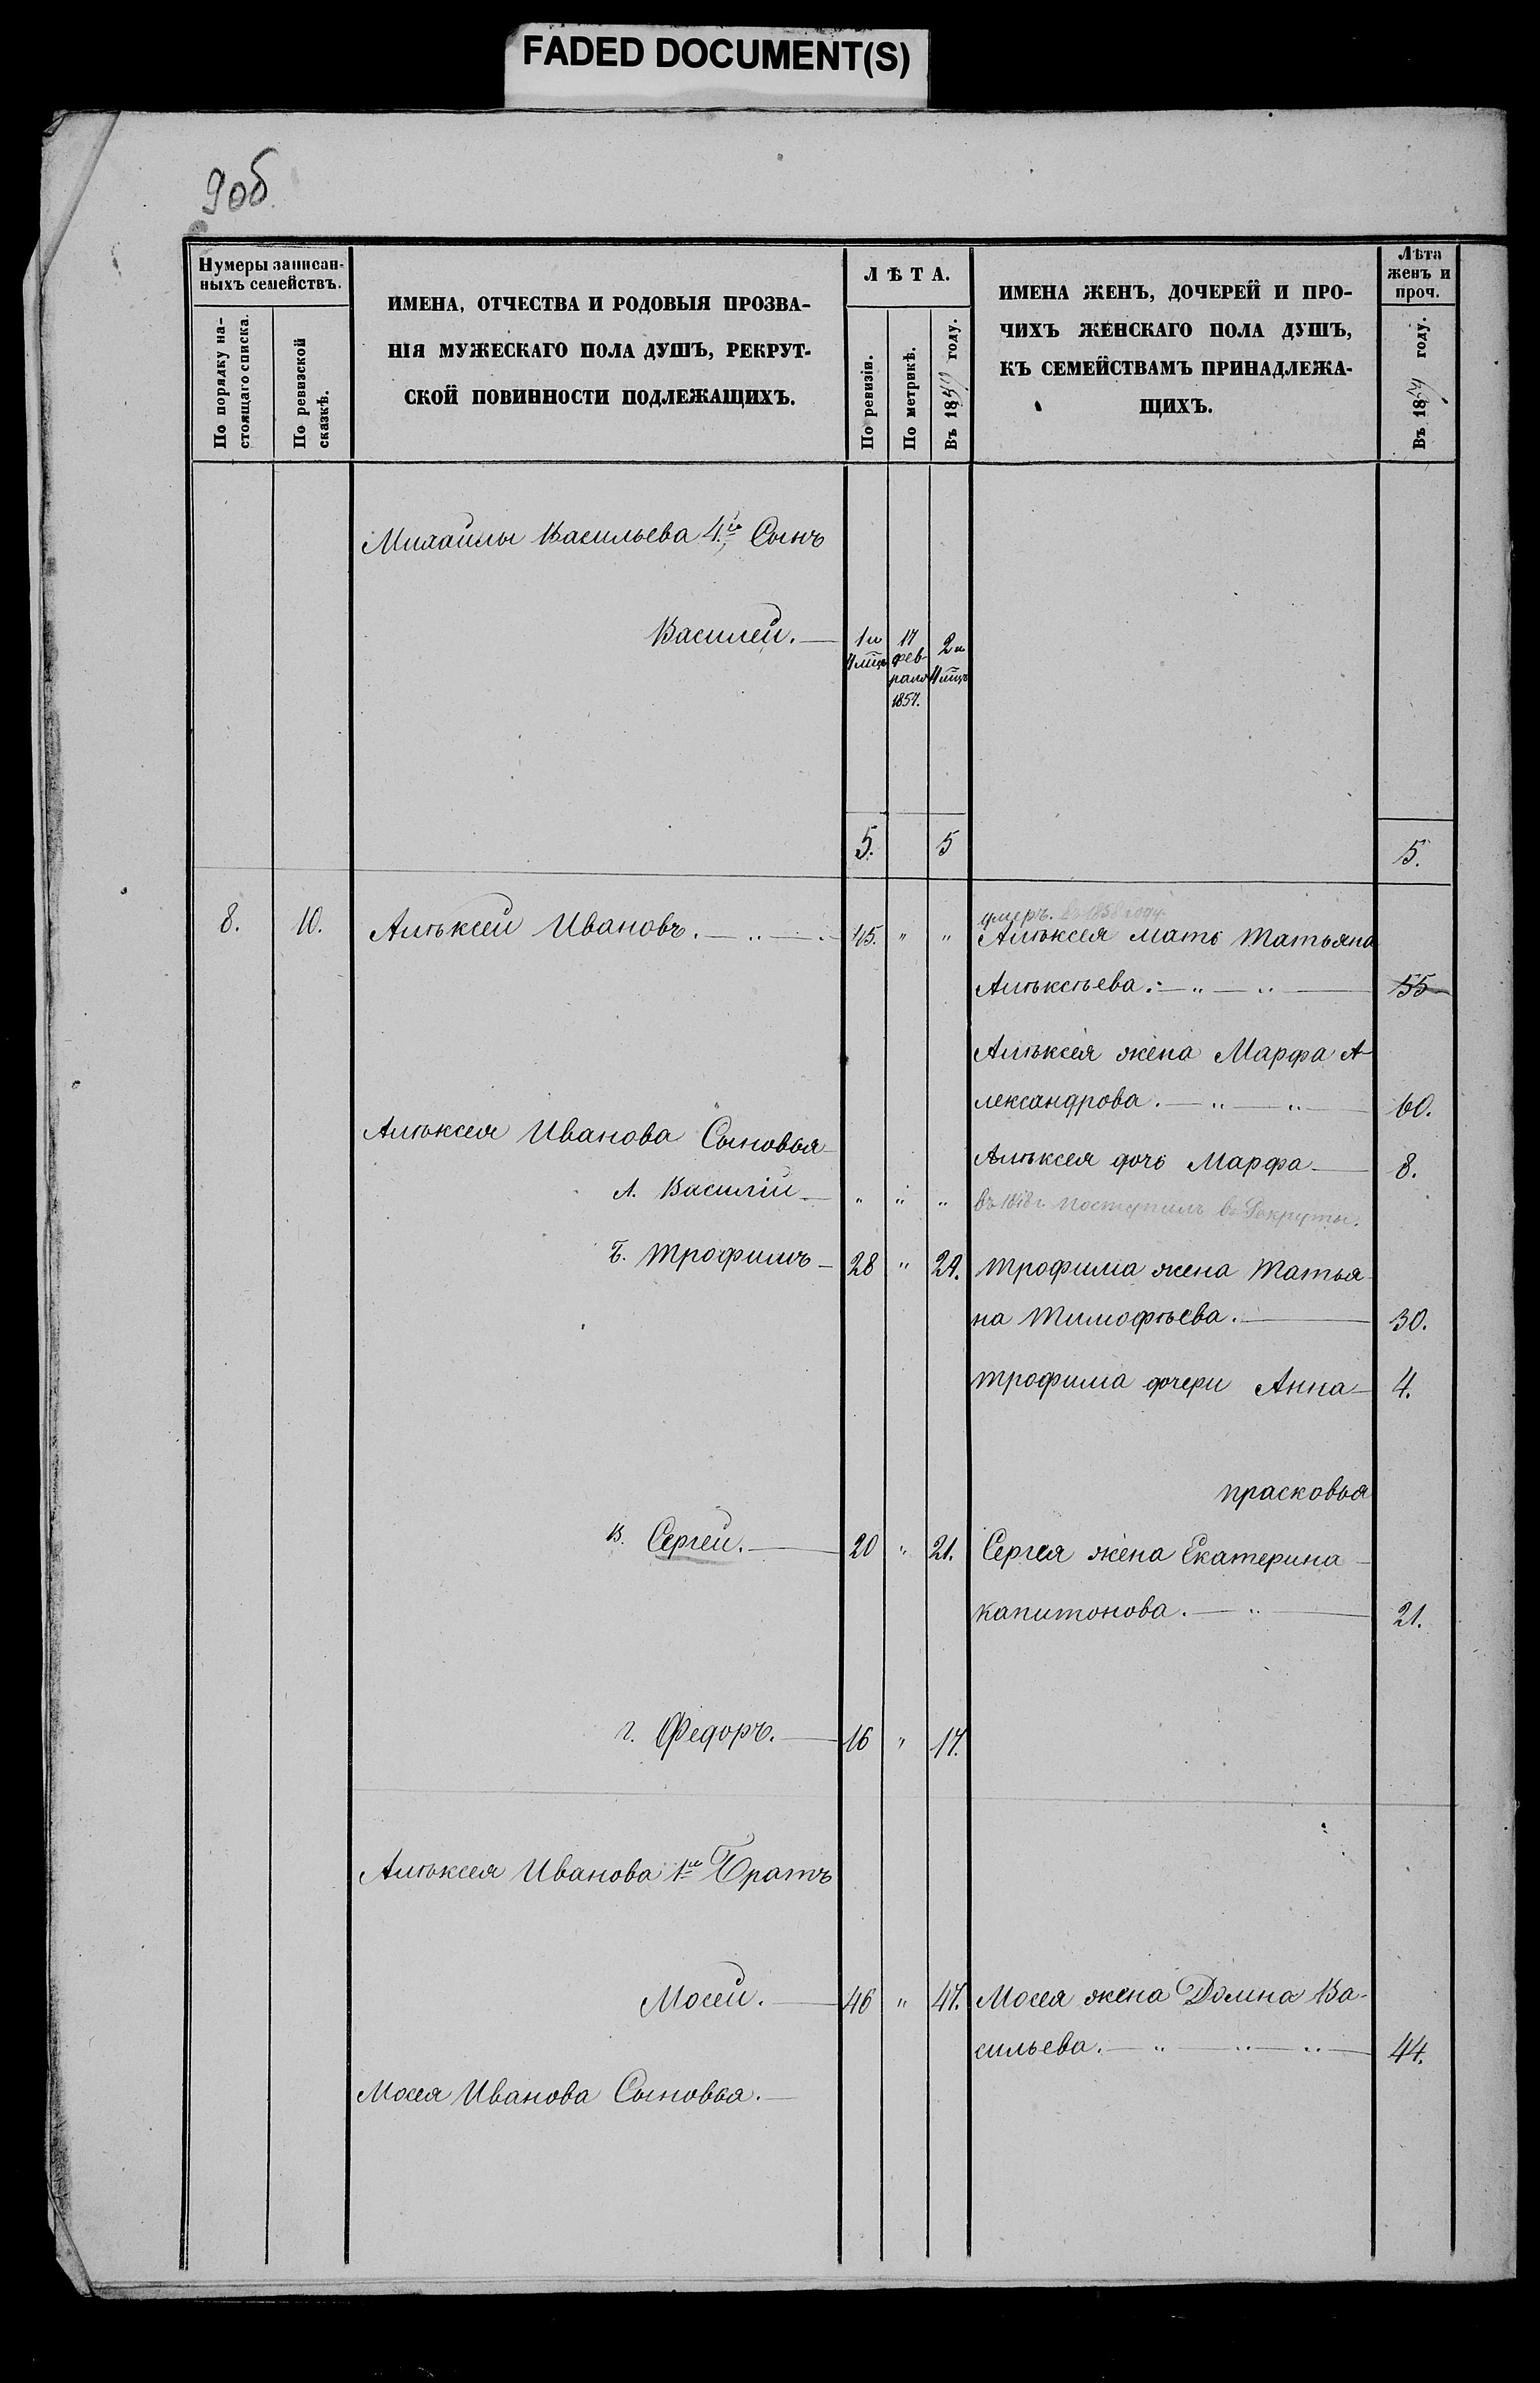 FADED DOCUMENT(S)
9об
Нумеры записан-
ныхъ семействъ.
По порядку на-
стоящаго списка.
По ревизской
сказкѣ.
ИМЕНА, ОТЧЕСТВА И РОДОВЫЯ ПРОЗВА-
НІЯ МУЖЕСКАГО ПОЛА ДУШЪ, РЕКРУТ-
СКОЙ ПОВИННОСТИ ПОДЛЕЖАЩИХЪ.
ЛѢТА.
По ревизіи.
По метрикѣ.
Въ 1859 году.
ИМЕНА ЖЕНЪ, ДОЧЕРЕЙ И ПРО-
ЧИХЪ ЖЕНСКАГО ПОЛА ДУШЪ,
КЪ СЕМЕЙСТВАМЪ ПРИНАДЛЕЖА-
ЩИХЪ.
Лѣта
женъ и
проч.
Въ 1859 году.
Михаилы Васильева 4й Сынъ
Василей. 1и 17 2и
4мца фев- 4мца
раля
1857.
5. 5 5.
умеръ. въ 1858 году.
8. 10. Алѣксей Ивановъ. 45. " " Алѣксея мать Татьяна
Алѣксѣева. 55
Алѣксея жена Марфа А-
лександрова. 60.
Алѣксея Иванова Сыновья
Алѣксея дочь Марфа 8.
А. Василій " " " въ г. поступилъ въ Рекруты.
Б. Трофимъ 28 " 29. Трофима жена Татья-
на Тимофѣева. 30.
Трофима дочери Анна 4.
Прасковья
В. Сергей. 20 " 21. Сергея жена Екатерина
Капитонова. 21.
Г. Федоръ. 16 " 17.
Алѣксея Иванова 1й Братъ
Мосей. 46 " 47. Мосея жена Домна Ва-
сильева. 44.
Мосея Иванова Сыновья.